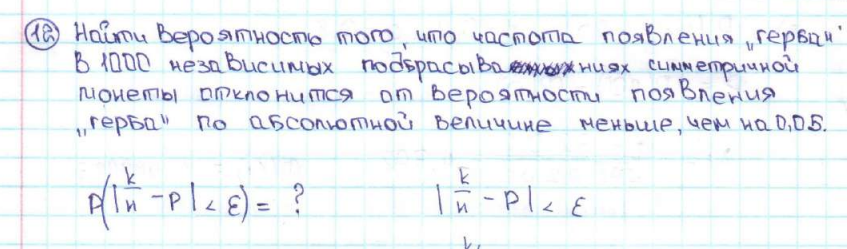 12 Найти вероятность того, что частота появления „герба"
в 1000 независимых подбрасываниях симметричной
монеты отклонится от вероятности появления
„герба" по абсолютной величине меньше, чем на 0,05.
P(|k/n - p| < ε) = ? |k/n - p| < ε
k